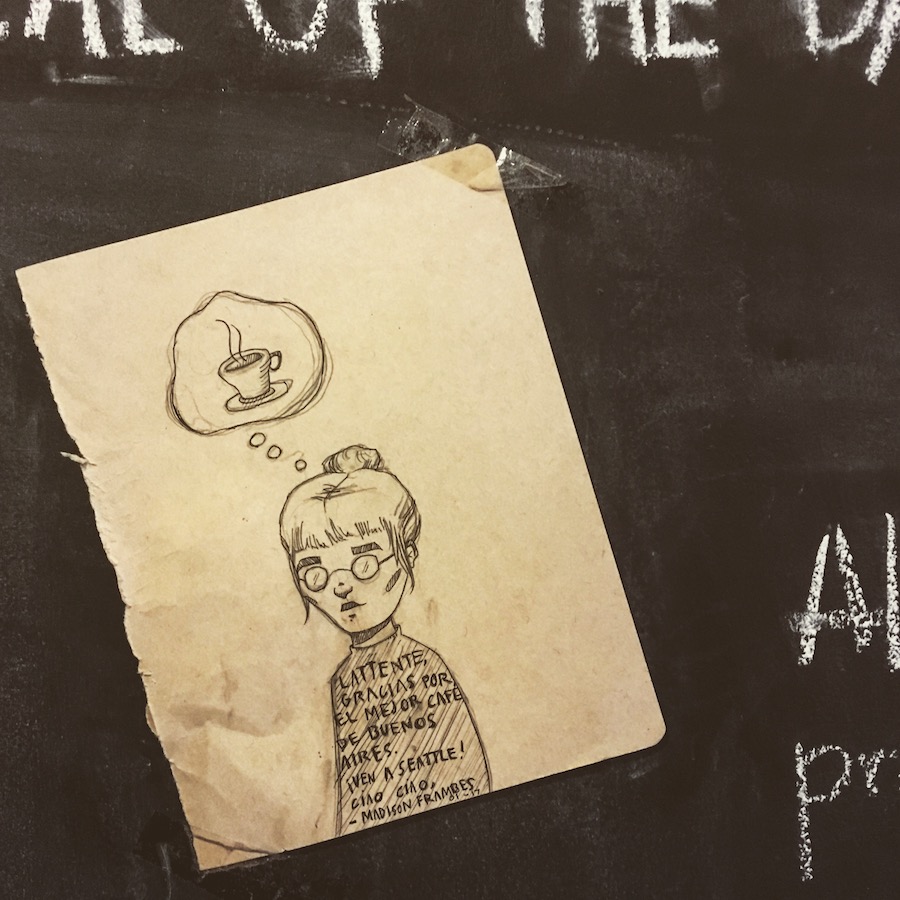 EAL OF THE DA
LATTENTE,
GRACIAS POR
EL MEJOR CAFÉ
DE BUENOS
AIRES.
¡VEN A SEATTLE!
CIAO CIAO,
- MADISON FRAMBES
Al
pr